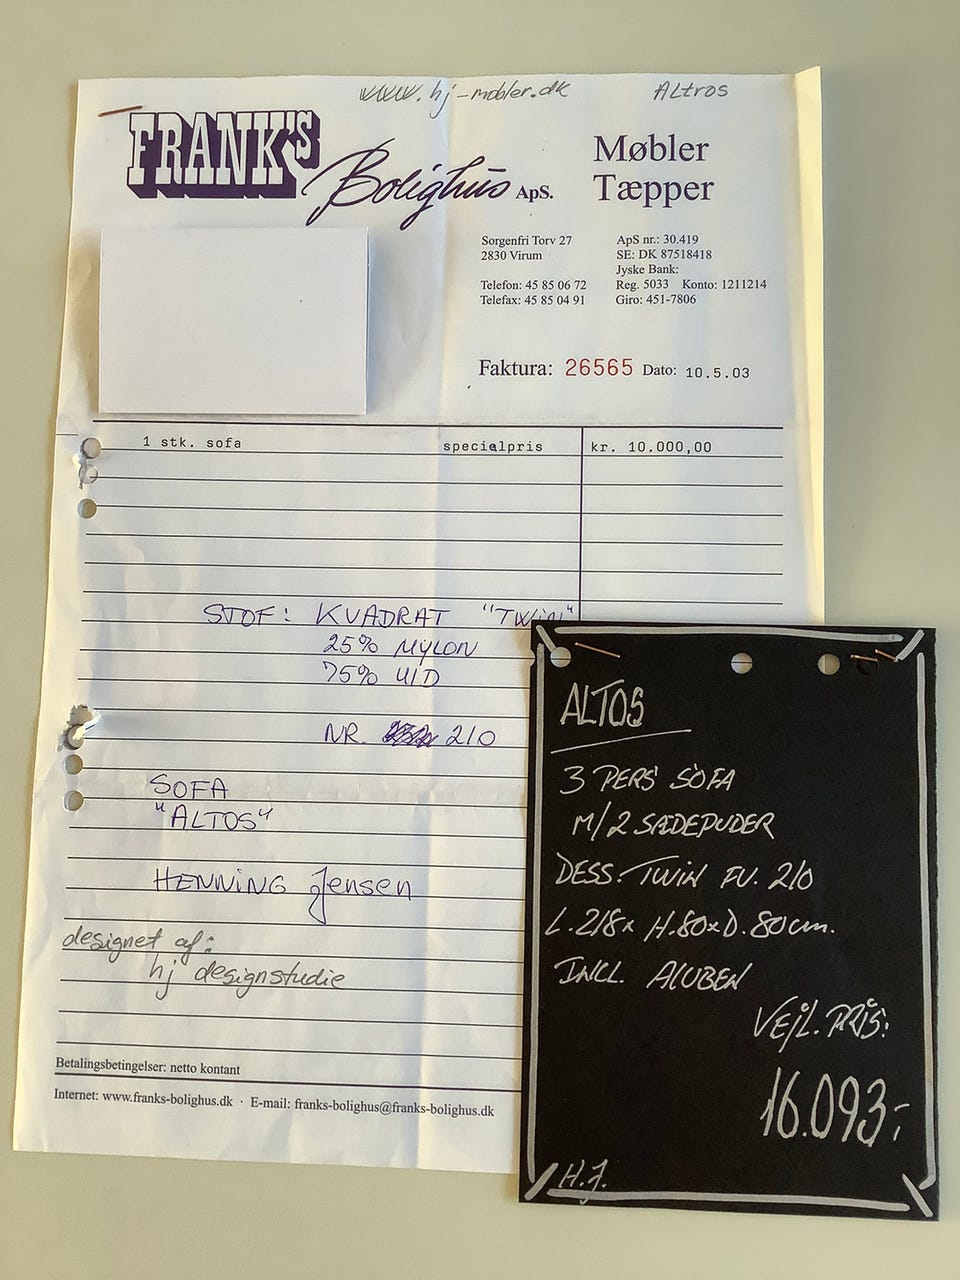 www.hj-møbler.dk
ALtros
FRANK'S
Bolighus ApS.
Møbler
Tæpper
Sorgenfri Torv 27
2830 Virum
Telefon: 45 85 06 72
Telefax: 45 85 04 91
ApS nr.: 30.419
SE: DK 87518418
Jyske Bank:
Reg. 5033 Konto: 1211214
Giro: 451-7806
Faktura: 26565 Dato: 10.5.03
1 stk. sofa specialpris kr. 10.000,00
STOF: KVADRAT "TWIN"
25% NYLON
75% ULD
NR. 210
SOFA
"ALTOS"
HENNING Jensen
designet af:
hj designstudie
Betalingsbetingelser: netto kontant
Internet: www.franks-bolighus.dk · E-mail: franks-bolighus@franks-bolighus.dk
ALTOS
3 PERS SOFA
M/2 SÆDEPUDER
DESS. TWIN FV. 210
L.218x H.80xD.80cm.
INCL. ALUBEN
VEJL. PRIS:
16.093,-
H.J.